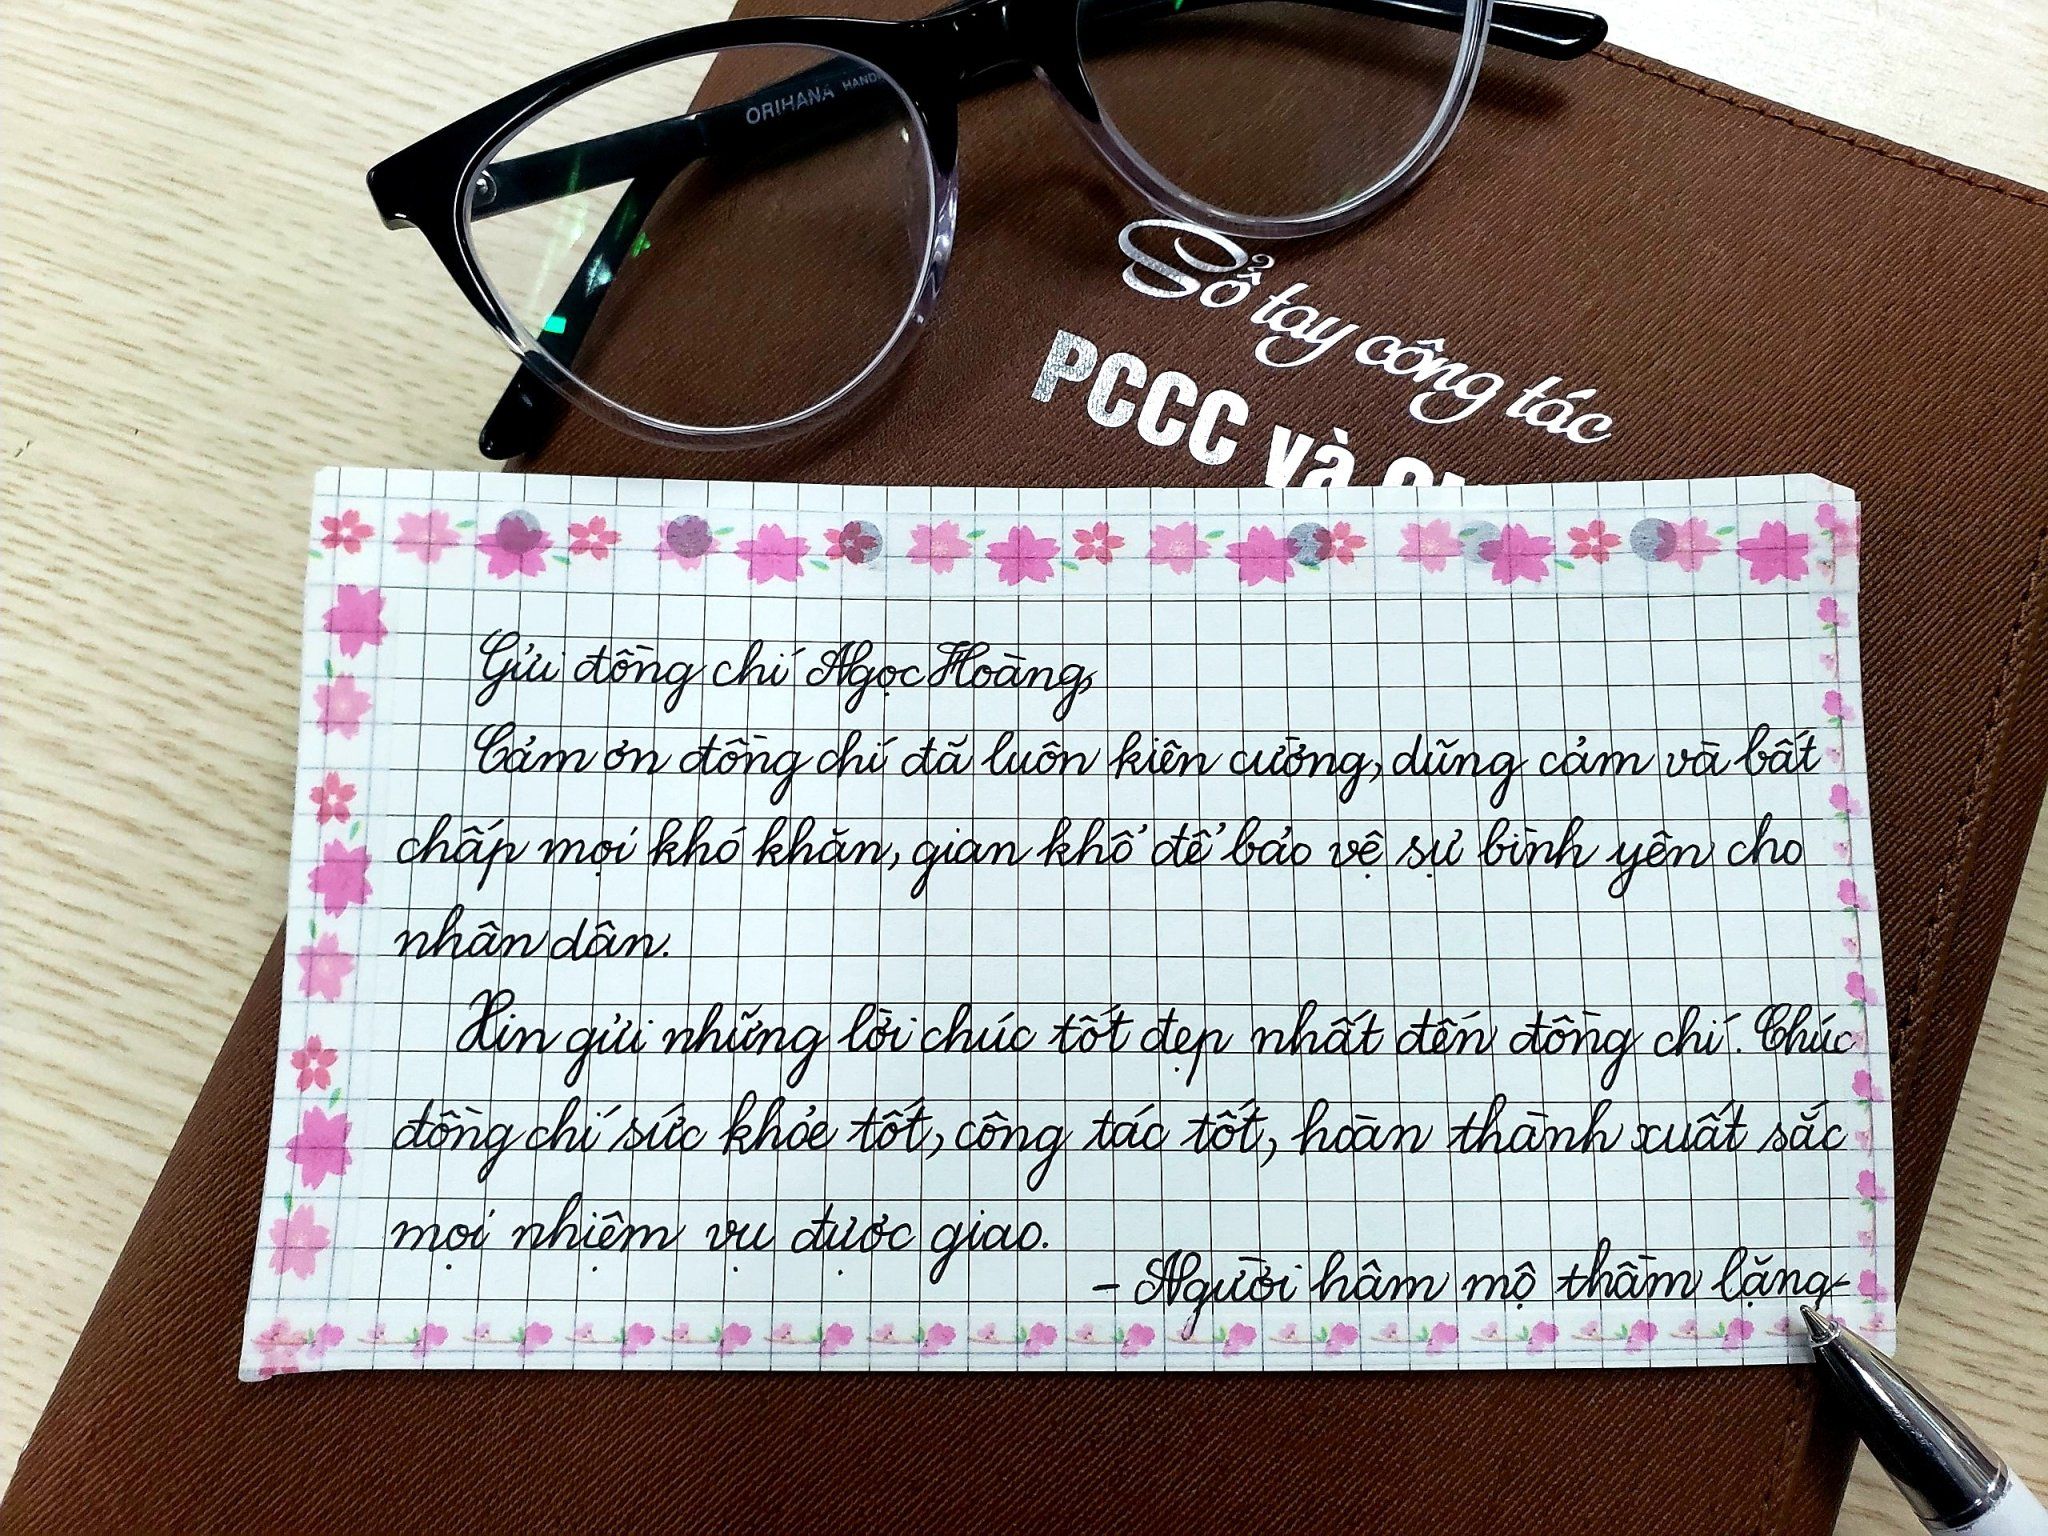 ORIHANA
Sổ tay công tác
PCCC và
Gửi đồng chí Ngọc Hoàng,
Cảm ơn đồng chí đã luôn kiên cường, dũng cảm và bất
chấp mọi khó khăn, gian khổ để bảo vệ sự bình yên cho
nhân dân.
Xin gửi những lời chúc tốt đẹp nhất đến đồng chí. Chúc
đồng chí sức khỏe tốt, công tác tốt, hoàn thành xuất sắc
mọi nhiệm vụ được giao.
- Người hâm mộ thầm lặng -